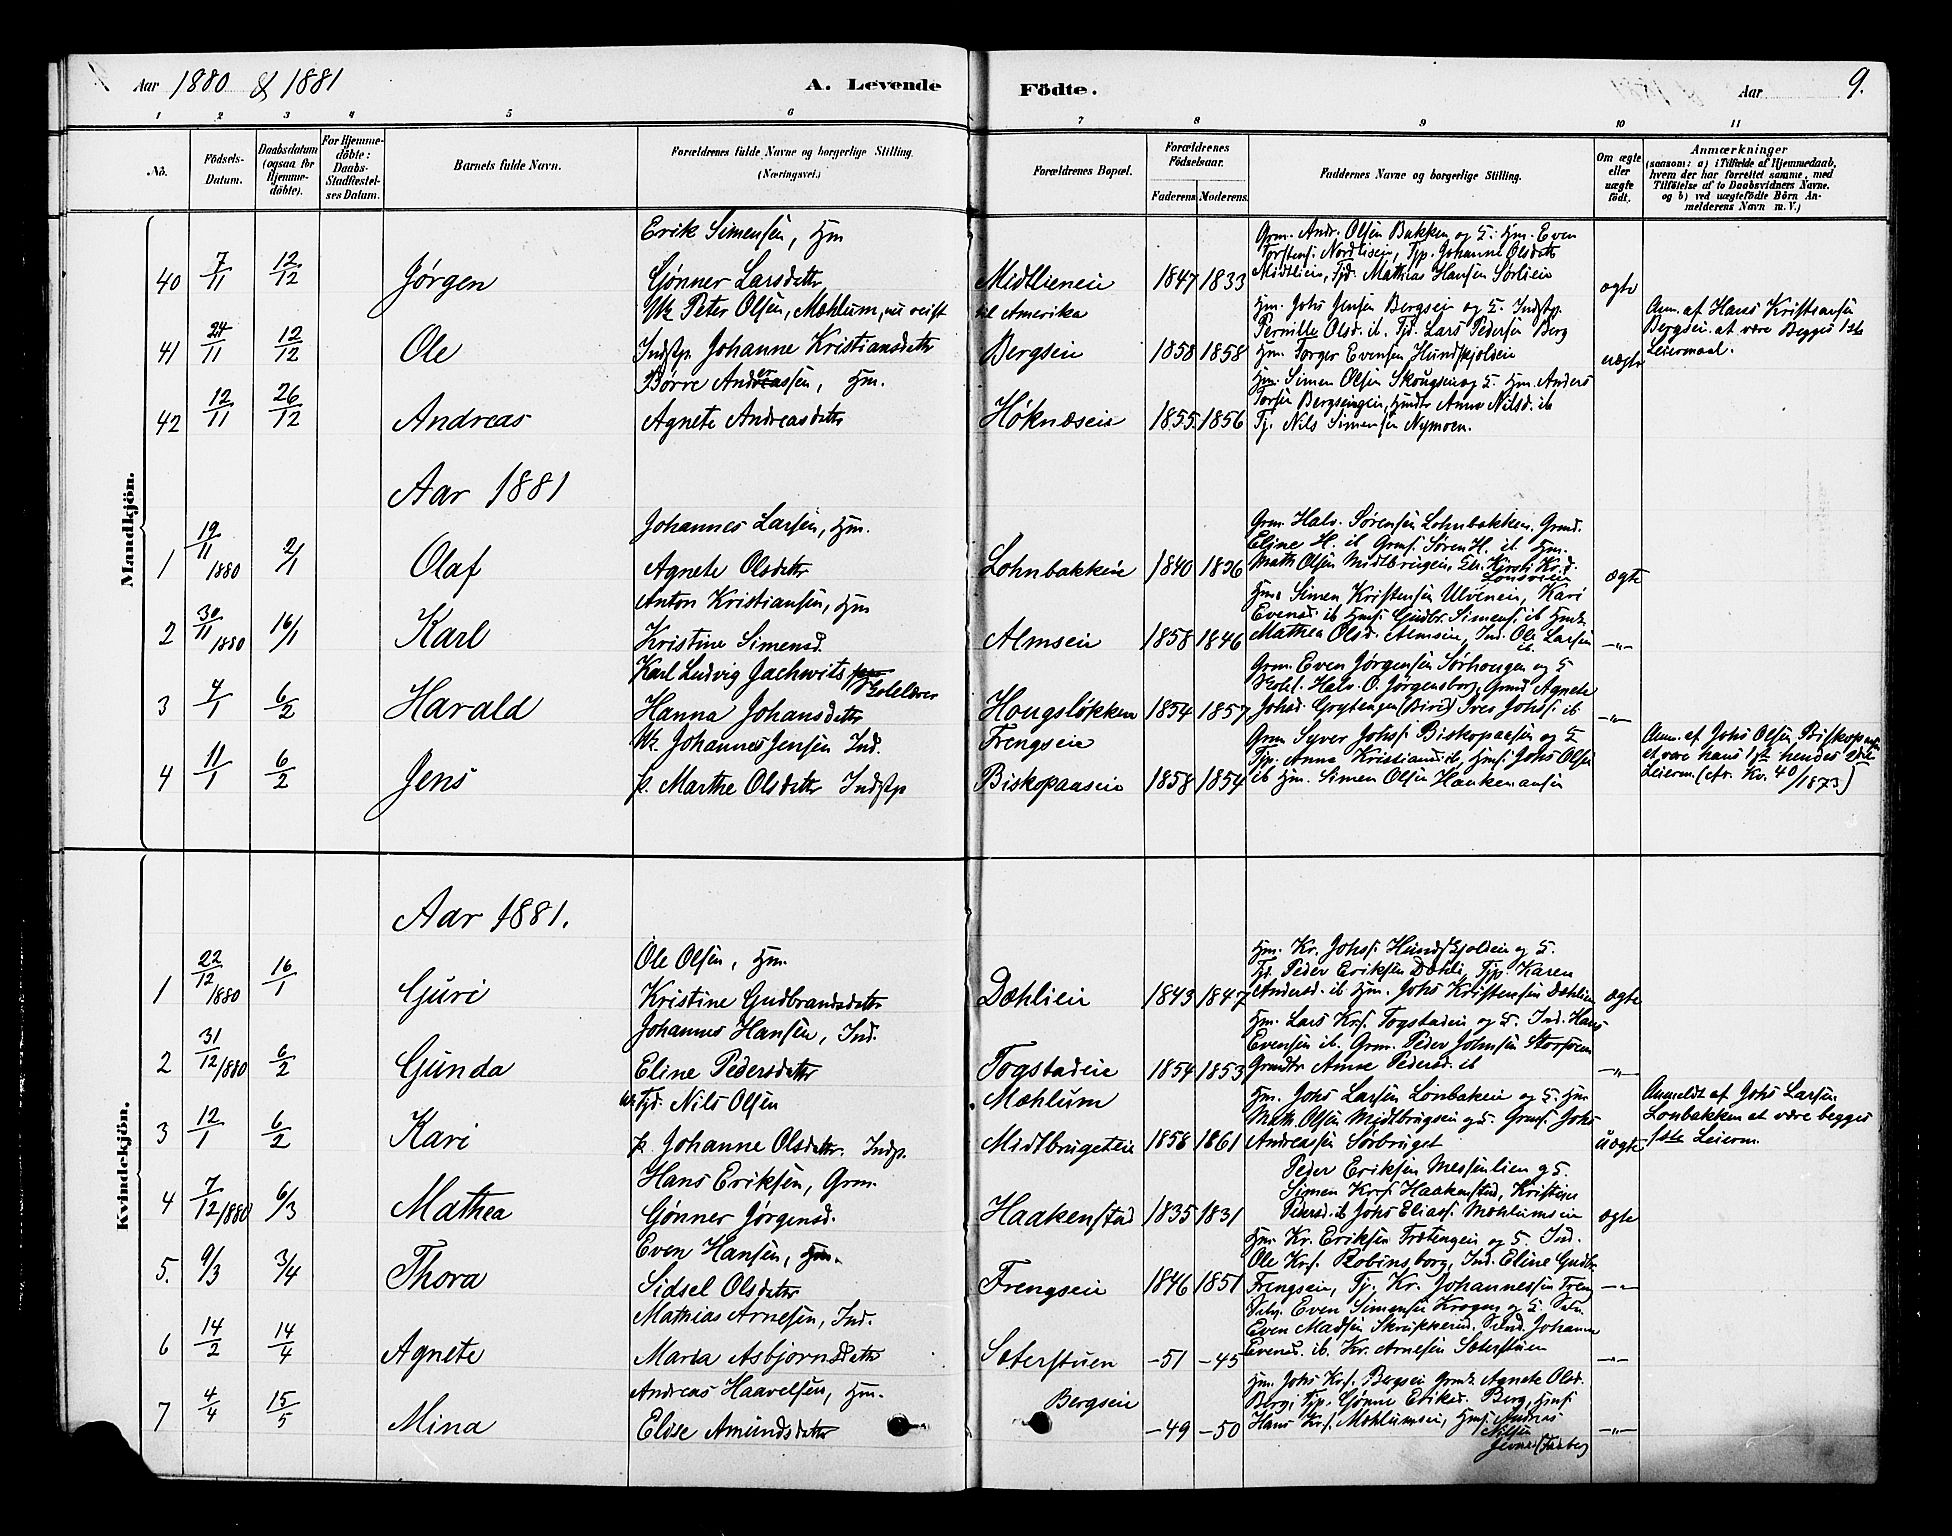 Aar 1880 & 1881
A. Levende Födte.
Aar 9.
1 2 3 4 5 6 7 8 9 10 11
No.
Födsels-Datum.
Daabsdatum (ogsaa for Hjemme-döbte).
For Hjemme-döbte: Daabs-Stadfæstel-ses Datum.
Barnets fulde Navn.
Forældrenes fulde Navne og borgerlige Stilling. (Næringsvei.)
Forældrenes Bopæl.
Forældrenes Födselsaar.
Faderens. Moderens.
Faddernes Navne og borgerlige Stilling.
Om ægte eller uægte födt.
Anmærkninger
(saasom: a) i Tilfælde af Hjemmedaab,
hvem der har forrettet samme, med
Tilföielse af to Daabsvidners Navne.
og b) ved uægtefödte Börn An-
melderens Navn m. V.)
Mandkjön.
40 7/11 12/12 Jørgen
Erik Simensen, Hm
Gønner Larsdatter
Midtlieneie 1847 1833
Grm. Andr. Olsen Bakken og H. Hm. Even
Torstens. Nordlieeie, Tjp. Johanne Olsdatter
Midtlien, Tjd. Mathias Hansen Sørlien
ægte
41 24/11 12/12 Ole
Uk Peter Olsen, Mæhlum, nu reist
til Amerika
Indstp. Johanne Kristiansdatter
Bergseie 1858 1858
Hm. Johs Jensen Bergseie og H. Indstp.
Pernille Olsd. ib. Tjd. Lars Pedersen Berg
Hm. Torger Evensen Hundskjoldeie
uægte
Anm. af Hans Kristiansen
Bergseie at være Begges 1ste
Leiermaal.
42 12/11 26/12 Andreas
Børre Andreassen, Hm.
Agnete Andreasdatter
Høknæseie 1855 1856
Hm. Simen Olsen Skougseie og H. Hm. Anders
Torsen Bergsengeie, Hmdtr Anne Nilsd. ib
Tj. Nils Simensen Nymoen.
Aar 1881
1 19/11 1880 2/1 Olaf
Johannes Larsen, Hm.
Agnete Olsdatter
Lohnbakkeie 1840 1836
Grm. Halv. Sørensen Lohnbakken, Grmd.
Eline H. ib Grmf. Søren H. ib. Hm.
Math Olsen Midtbrugeie, Kirsti Kr.d.
Lonsveen
ægte
2 30/11 1880 16/1 Karl
Anton Kristiansen, Hm
Kristine Simensd.
Almseie 1858 1846
Hm. Simen Kristensen Ulveneie, Kari
Evensd. ib Hmf. Gudbr. Simens. ib Hmdtr
Mathea Olsd. Almseie, Ind. Ole Larsen
ib.
—"—
3 7/1 6/2 Harald
Karl Ludvig Jachwits Skolelærer
Hanna Johansdatter
Hougsløkken 1854 1857
Grm. Even Jørgensen Sørhougen og H
Skolel. Halv. O. Jørgensborg, Grmd Agnete
Johsd. Grytingen (Biri) Iver Johs. ib
—"—
4 11/1 6/2 Jens
Uk. Johannes Jensen Ind.
p. Marthe Olsdatter Indstp
Frengseie
Biskopaaseie 1858 1854
Grm Syver Johs. Biskopaasen og H
Tjp. Anne Kristiansd. ib, Hmf. Johs Olsen
ib Hm. Simen Olsen
Anm. af Johs Olsen Biskopaas
at være hans 1ste hendes 2det
Leierm. (cfr. Kv. 40/1873)
Kvindekjön.
Aar 1881.
1 22/12 1880 16/1 Guri
Ole Olsen, Hm.
Kristine Gudbrandsdatter
Dæhlieie 1843 1847
Hm. Kr. Johs. Hundskjoldeie og H.
Tjd. Peder Eriksen Dæhli, Tjp Karen
Andersd. ib Hm. Johs Kristensen Dæhlieie
ægte
2 31/12 1880 6/2 Gunda
Johannes Hansen, Ind.
Eline Pedersdatter
Togstadeie 1854 1853
Hm. Lars Krs. Togstadeie og H. Ind. Hans
Evensen ib. Grm. Peder Johnsen Storsveen
Grmdtr Anne Pedersd. ib
—"—
3 12/1 6/2 Kari
Uk Tjd. Nils Olsen
p. Johanne Olsdatter. Indp.
Mæhlum
Midtbrugeteie 1858 1861
Hm. Johs Larsen Lonbakeie og H. Hm
Math. Olsen Midtbrugeie og H. Grmf. Johs
Andreassen Sørbruget
uægte
Anmeldt af Johs Larsen
Lonbakken at være begges
1ste Leierm.
4 7/12 1880 6/3 Mathea
Hans Eriksen, Grm.
Gønner Jørgensd.
Haakenstad 1835 1831
Peder Eriksen Messenlien og H.
Simen Krs. Haakenstad, Kristine
Pedersd. ib Johs Elias. Mæhlumseie
ægte
5. 9/3 3/4 Thora
Even Hansen, Hm.
Sidsel Olsdatter
Frengseie 1846 1851
Hm. Kr. Eriksen Trætengeie og H. Ind.
Ole Krs. Robinsborg, Ind. Eline Gudbr.
Frengseie, Tj. Kr. Johannessen Freng
—"—
6 14/2 14/4 Agnete
Mathias Arnesen, Ind.
Maria Asbjørnsdatter
Sæterstuen -51 -45
Selv. Even Simensen Krogen og H. Selv.
Even Madsen Skrukkerud. Johanne
Evensd. ib. Kr. Arnesen Sæterstuen
—"—
7 4/4 15/5 Mina
Andreas Haavelsen, Hm.
Elise Amundsdatter
Bergseie -49 -50
Hm. Johs Krs. Bergseie Grmdtr. Agnete Olsd.
Berg, Tjp. Gønne Eriksd. Berg, Hmf.
Hans Krs. Mæhlumseie, Hmf. Andreas
Nilsen
—"—